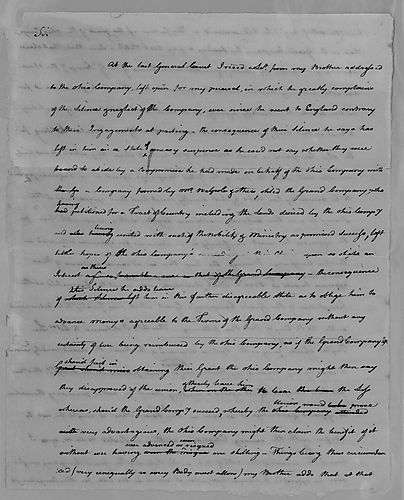 Sir
At the last General Court I recd a letr. from my Brother addressed
to the Ohio Company, left open for my perusal, in which he greatly complains
of the silence & neglect of the Company, ever since he went to England contrary
to their Ingagements at parting. The consequence of their silence he says has
left in him in a State of uneasy suspence as he could not say whether they were
bound to abide by a Compromise he had made on behalf of the Ohio Company with
a Company formed by Mr Walpole & others, stiled the Grand Company, who
having petitioned for a Tract of Country including the Lands desired by the Ohio Compy
and being united with most of the Nobility & Ministry as promised success, left
little hopes of the Ohio Company's upon so slight an
Interest as theirs the consequence
of Silence he adds leave him in this further disagreeable State as to oblige him to
advance moneys agreeable to the Terms of the Grand Company without any
certainty of ever being reimbursed by the Ohio Company, as if the Grand Company
should fail in obtaining their Grant the Ohio Company might then say
they disapproved of the union, & thereby leave him to bear the loss
whereas, should the Grand Compy succeed, whereby the Union would prove
very advantagious, the Ohio Company might then claim the benifit of it
without ever having even advanced or risqued one shilling. Things being thus circumstan
ced (very unequally as every Body must allow) my Brother adds that at that